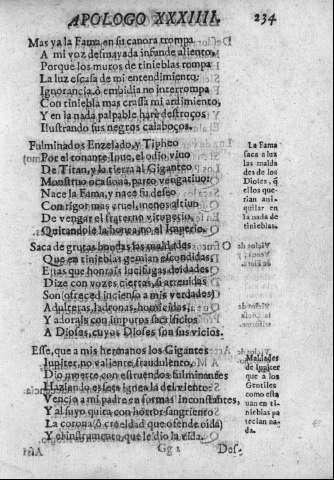 APOLOGO XXXIIII. 234
Mas ya la Fama en su canora trompa
A mi voz desmayada infunde aliento,
Porque los muros de tinieblas rompa
La luz escasa de mi entendimiento.
Ignorancia, ò embidia no interrompa
Con tiniebla mas crassa mi ardimiento,
Y en la nada palpable harè destroços
Ilustrando sus negros calaboços.
Fulminados Enzelado, y Tipheo
Por el tonante Ioue, el odio vino
De Titan, y la tierra al Giganteo
Monstruo ocasiona, parto vengatiuo:
Nace la Fama, y nace su deseo
Con rigor mas cruel, menos altiuo
De vengar el fraterno vituperio,
Quitandole la honra, no el Imperio.
La Fama
saca a luz
las malda
des de los
Dioses, q̃
ellos que-
rian ani-
quilar en
la nada de
tinieblas.
Saca de grutas hondas las maldades
Que en tinieblas gemian escondidas,
Estas que honrais lucifugas deidades
Dize con vozes ciertas, si atreuidas
Son (ofreced incienso a mis verdades)
Adulteras, ladronas, homicidas,
Y adorais con impuros sacrificios
A Dioses, cuyos Dioses son sus vicios.
Esse, que a mis hermanos los Gigantes
Iupiter, no valiente, fraudulento,
Dio muerte con estruendos fulminantes
Vencio a mi padre en formas inconstantes,
Y al suyo quita con horror sangriento
La corona (ò crueldad que ofende oida)
Y el instrumento que le dio la vida.
Maldades
de Iupiter
que a los
Gentiles
como esta
uan en ti-
nieblas pa
recian na-
da.
Gg 2 Des-